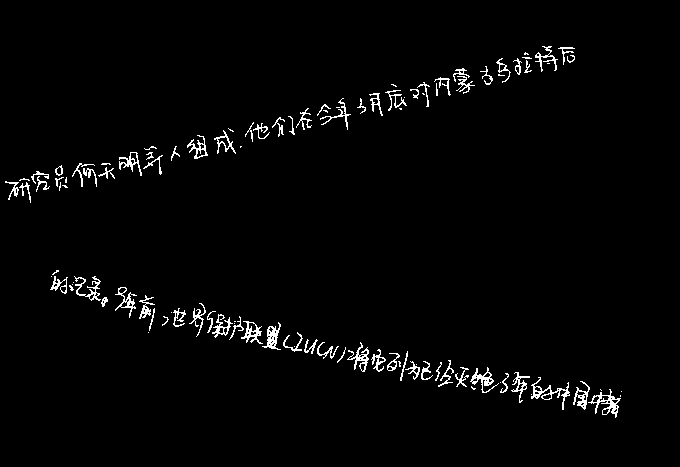 研究员何天明等人组成.他们在今年3月底对内蒙古乌拉特后
的记录。多年前,世界保护联盟(IUCN)将它列为已经灭绝了年的中国中